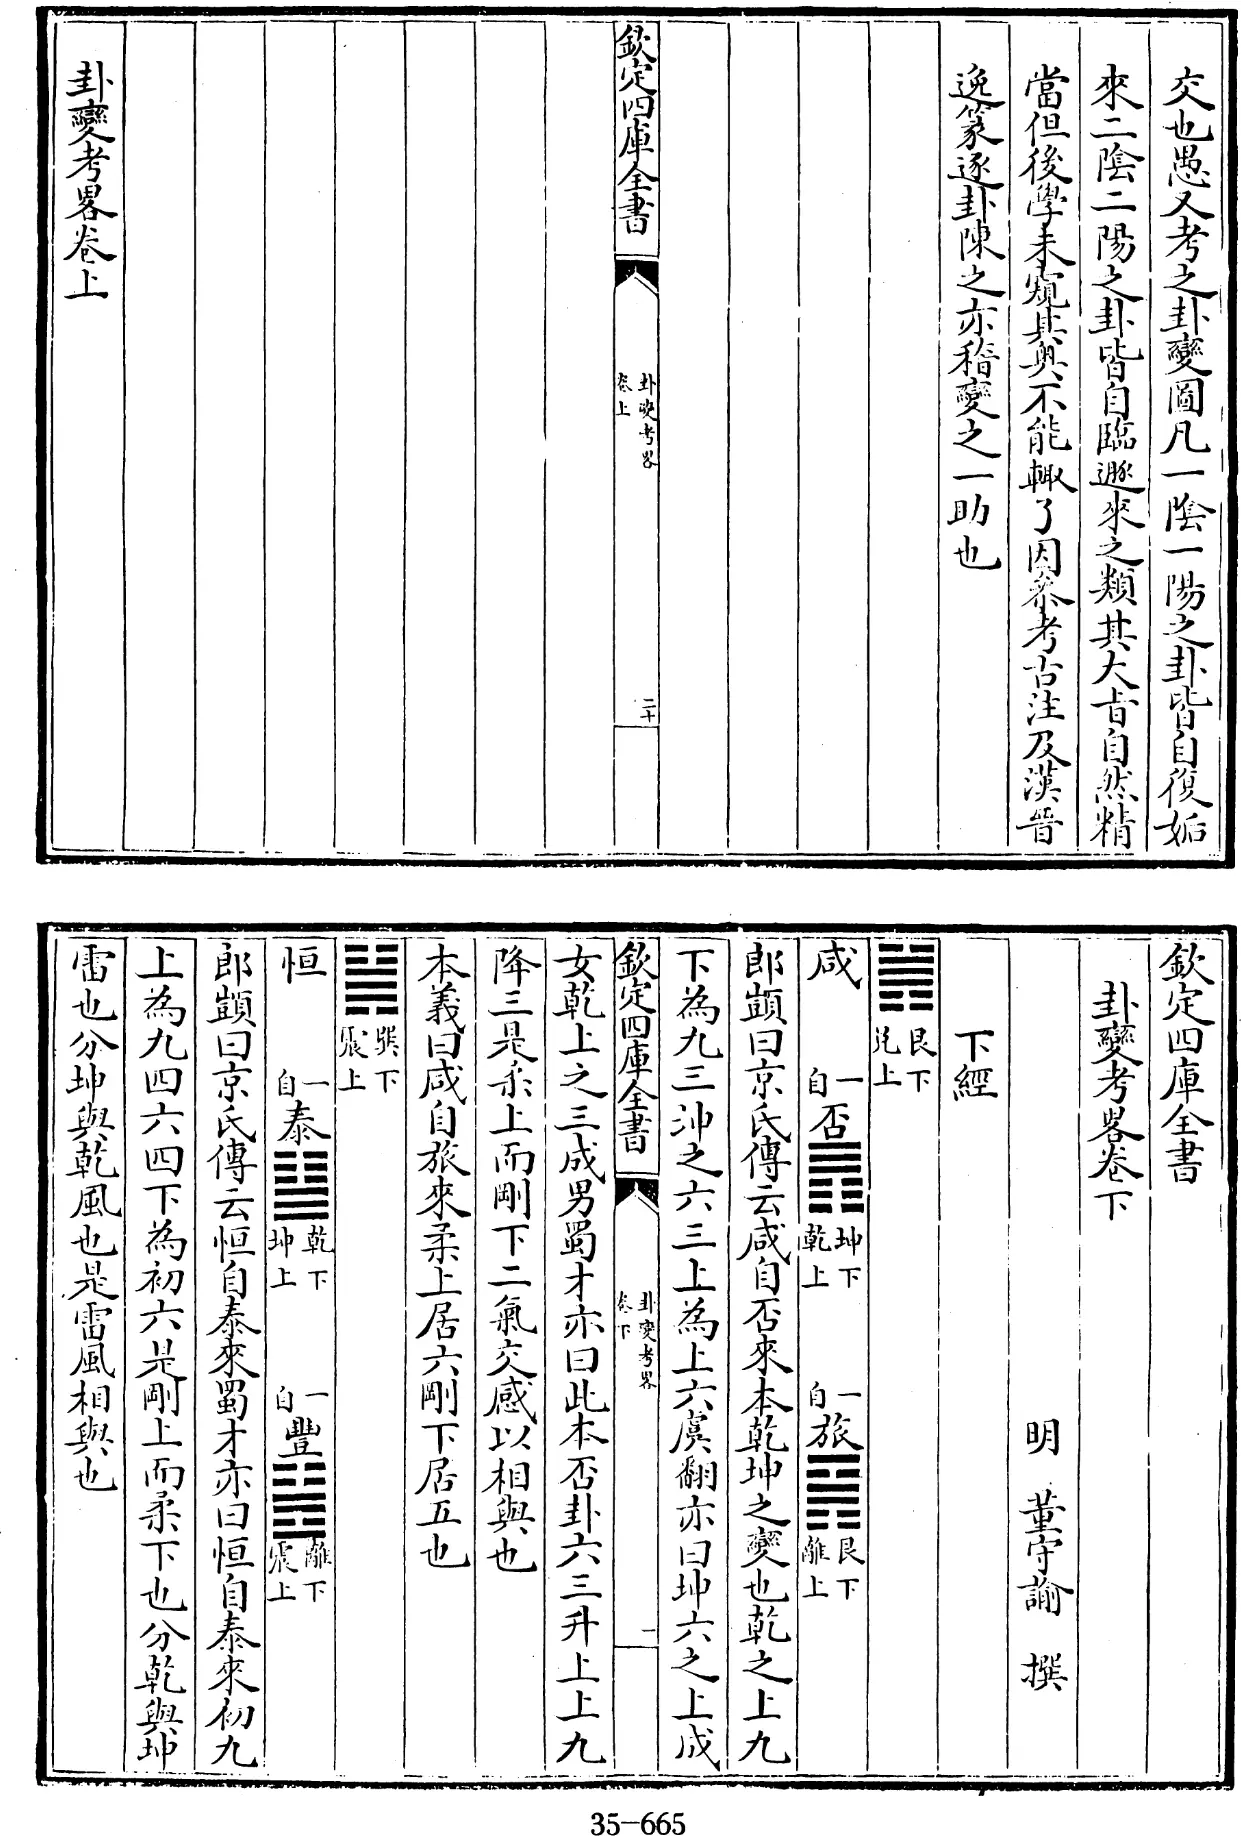 交也愚又考之卦變圖凡一陰一陽之卦皆自復姤
來二陰二陽之卦皆自臨遯來之類其大㫖自然精
當但後學未窺其奥不能輙了因叅考古注及漢晉
逸篆逐卦陳之亦稽變之一助也
欽定四庫全書
卦變考畧
卷上
二十
卦變考畧卷上
欽定四庫全書
卦變考畧卷下
明 董守諭 撰
下經
艮下
兌上
咸 一自否 坤下乾上 一自旅 艮下離上
郎顗曰京氏傳云咸自否來本乾坤之變也乾之上九
下為九三沖之六三上為上六虞翻亦曰坤六之上成
欽定四庫全書
卦變考畧
卷下
一
女乾上之三成男蜀才亦曰此本否卦六三升上上九
降三是柔上而剛下二氣交感以相與也
本義曰咸自旅來柔上居六剛下居五也
巽下
震上
恒 一自泰 乾下坤上 一自豐 離下震上
郎顗曰京氏傳云恒自泰來蜀才亦曰恒自泰來初九
上為九四六四下為初六是剛上而柔下也分乾與坤
雷也分坤與乾風也是雷風相與也
35-665